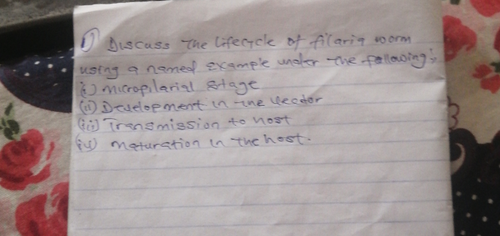 1) Discuss The Lifecycle of filaria worm
using a named example under the following:
(i) micropilarial stage
(ii) Development in the vector
(iii) Transmission to host
(iv) maturation in the host.